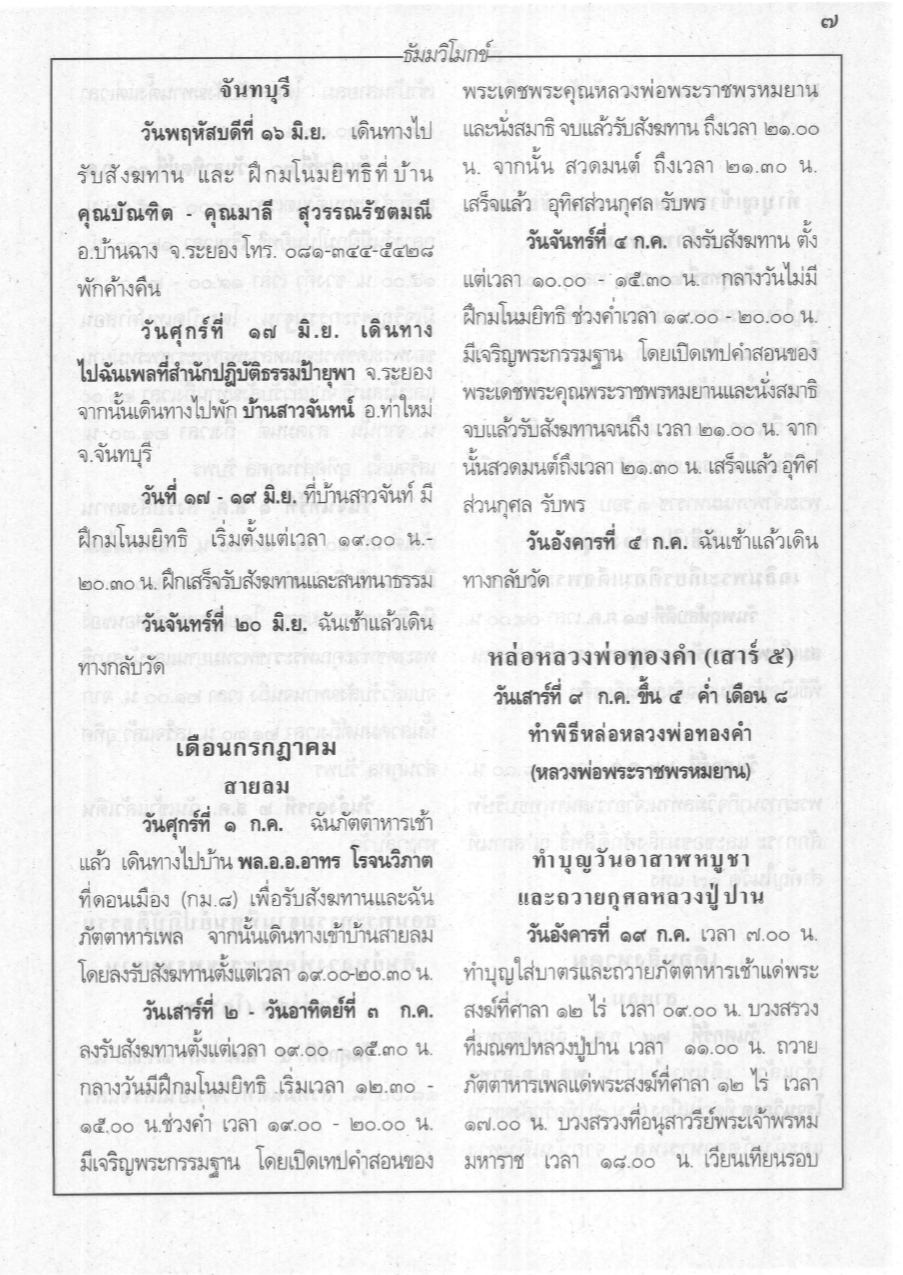 ๗
ธัมมวิโมกข์
จันทบุรี
วันพฤหัสบดีที่ ๑๖ มิ.ย. เดินทางไป
รับสังฆทาน และ ฝึกมโนมยิทธิที่บ้าน
คุณบัณฑิต - คุณมาลี สุวรรณรัชตมณี
อ.บ้านฉาง จ.ระยอง โทร. ๐๘๑-๓๔๔-๕๔๒๘
พักค้างคืน
วันศุกร์ที่ ๑๗ มิ.ย. เดินทาง
ไปฉันเพลที่สำนักปฏิบัติธรรมป่ายุพา จ.ระยอง
จากนั้นเดินทางไปพัก บ้านสาวจันทน์ อ.ท่าใหม่
จ.จันทบุรี
วันที่ ๑๗ - ๑๙ มิ.ย. ที่บ้านสาวจันท์ มี
ฝึกมโนมยิทธิ เริ่มตั้งแต่เวลา ๑๙.๐๐ น.-
๒๐.๓๐ น. ฝึกเสร็จรับสังฆทานและสนทนาธรรม
วันจันทร์ที่ ๒๐ มิ.ย. ฉันเช้าแล้วเดิน
ทางกลับวัด
เดือนกรกฎาคม
สายลม
วันศุกร์ที่ ๑ ก.ค. ฉันภัตตาหารเช้า
แล้ว เดินทางไปบ้าน พล.อ.อ.อาทร โรจนวิภาต
ที่ดอนเมือง (กม.๘) เพื่อรับสังฆทานและฉัน
ภัตตาหารเพล จากนั้นเดินทางเข้าบ้านสายลม
โดยลงรับสังฆทานตั้งแต่เวลา ๑๙.๐๐-๒๐.๓๐ น.
วันเสาร์ที่ ๒ - วันอาทิตย์ที่ ๓ ก.ค.
ลงรับสังฆทานตั้งแต่เวลา ๐๙.๐๐ - ๑๕.๓๐ น.
กลางวันมีฝึกมโนมยิทธิ เริ่มเวลา ๑๒.๓๐ -
๑๕.๐๐ น.ช่วงค่ำ เวลา ๑๙.๐๐ - ๒๐.๐๐ น.
มีเจริญพระกรรมฐาน โดยเปิดเทปคำสอนของ
พระเดชพระคุณหลวงพ่อพระราชพรหมยาน
และนั่งสมาธิ จบแล้วรับสังฆทาน ถึงเวลา ๒๑.๐๐
น. จากนั้น สวดมนต์ ถึงเวลา ๒๑.๓๐ น.
เสร็จแล้ว อุทิศส่วนกุศล รับพร
วันจันทร์ที่ ๔ ก.ค. ลงรับสังฆทาน ตั้ง
แต่เวลา ๑๐.๐๐ - ๑๕.๓๐ น. กลางวันไม่มี
ฝึกมโนมยิทธิ ช่วงค่ำเวลา ๑๙.๐๐ - ๒๐.๐๐ น.
มีเจริญพระกรรมฐาน โดยเปิดเทปคำสอนของ
พระเดชพระคุณพระราชพรหมยานและนั่งสมาธิ
จบแล้วรับสังฆทานจนถึง เวลา ๒๑.๐๐ น. จาก
นั้นสวดมนต์ถึงเวลา ๒๑.๓๐ น. เสร็จแล้ว อุทิศ
ส่วนกุศล รับพร
วันอังคารที่ ๕ ก.ค. ฉันเช้าแล้วเดิน
ทางกลับวัด
หล่อหลวงพ่อทองคำ (เสาร์ ๕)
วันเสาร์ที่ ๙ ก.ค. ขึ้น ๕ ค่ำ เดือน ๘
ทำพิธีหล่อหลวงพ่อทองคำ
(หลวงพ่อพระราชพรหมยาน)
ทำบุญวันอาสาฬหบูชา
และถวายกุศลหลวงปู่ปาน
วันอังคารที่ ๑๙ ก.ค. เวลา ๗.๐๐ น.
ทำบุญใส่บาตรและถวายภัตตาหารเช้าแด่พระ
สงฆ์ที่ศาลา ๑๒ ไร่ เวลา ๐๙.๐๐ น. บวงสรวง
ที่มณฑปหลวงปู่ปาน เวลา ๑๑.๐๐ น. ถวาย
ภัตตาหารเพลแด่พระสงฆ์ที่ศาลา ๑๒ ไร่ เวลา
๑๗.๐๐ น. บวงสรวงที่อนุสาวรีย์พระเจ้าพรหม
มหาราช เวลา ๑๘.๐๐ น. เวียนเทียนรอบ